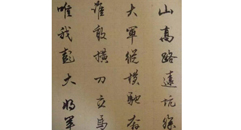 山高路远坑深
大軍縱橫馳奔
誰敢橫刀立馬
唯我彭大將軍